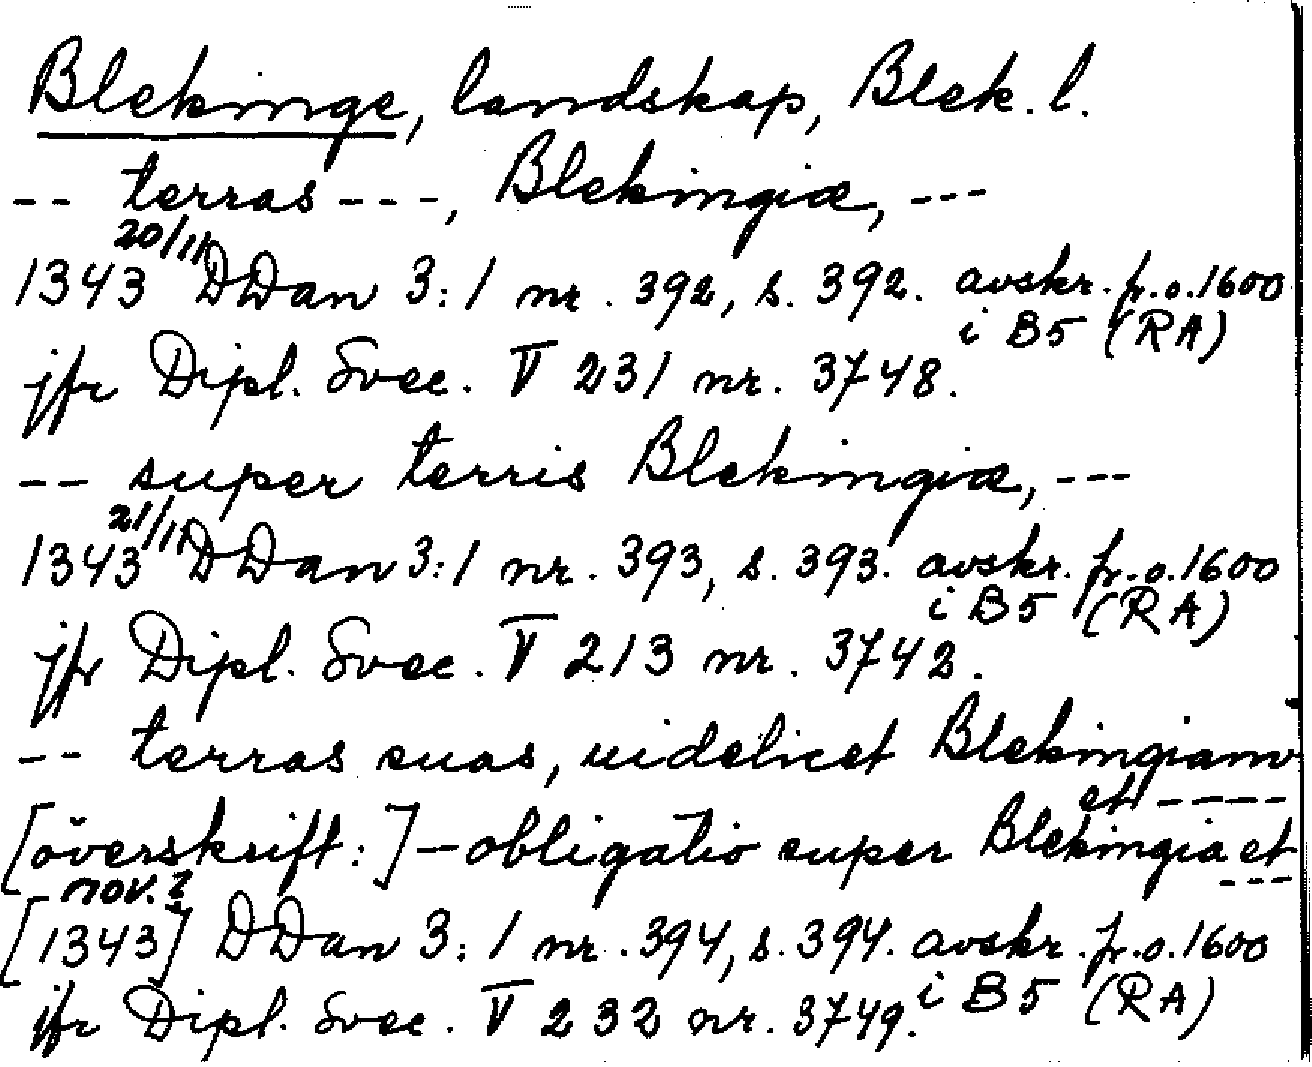 Blekinge, landskap, Blek. l.
-- terras ---, Blekingiæ, ---
20/11
1343 DDan 3:1 nr. 392, s. 392. avskr. fr. o. 1600
i B5 (RA)
jfr Dipl. Svec. V 231 nr. 3748.
-- super terris Blekingiæ, ---
21/11
1343 DDan 3:1 nr. 393, s. 393. avskr. fr. o. 1600
i B5 (RA)
jfr Dipl. Svec. V 213 nr. 3742.
-- terras suas, uidelicet Blekingiam
et ----
[överskrift:] - obligatio super Blekingia et
---
nov.?
[1343] DDan 3:1 nr. 394, s. 394. avskr. fr. o. 1600
i B5 (RA)
jfr Dipl. Svec. V 232 nr. 3749.